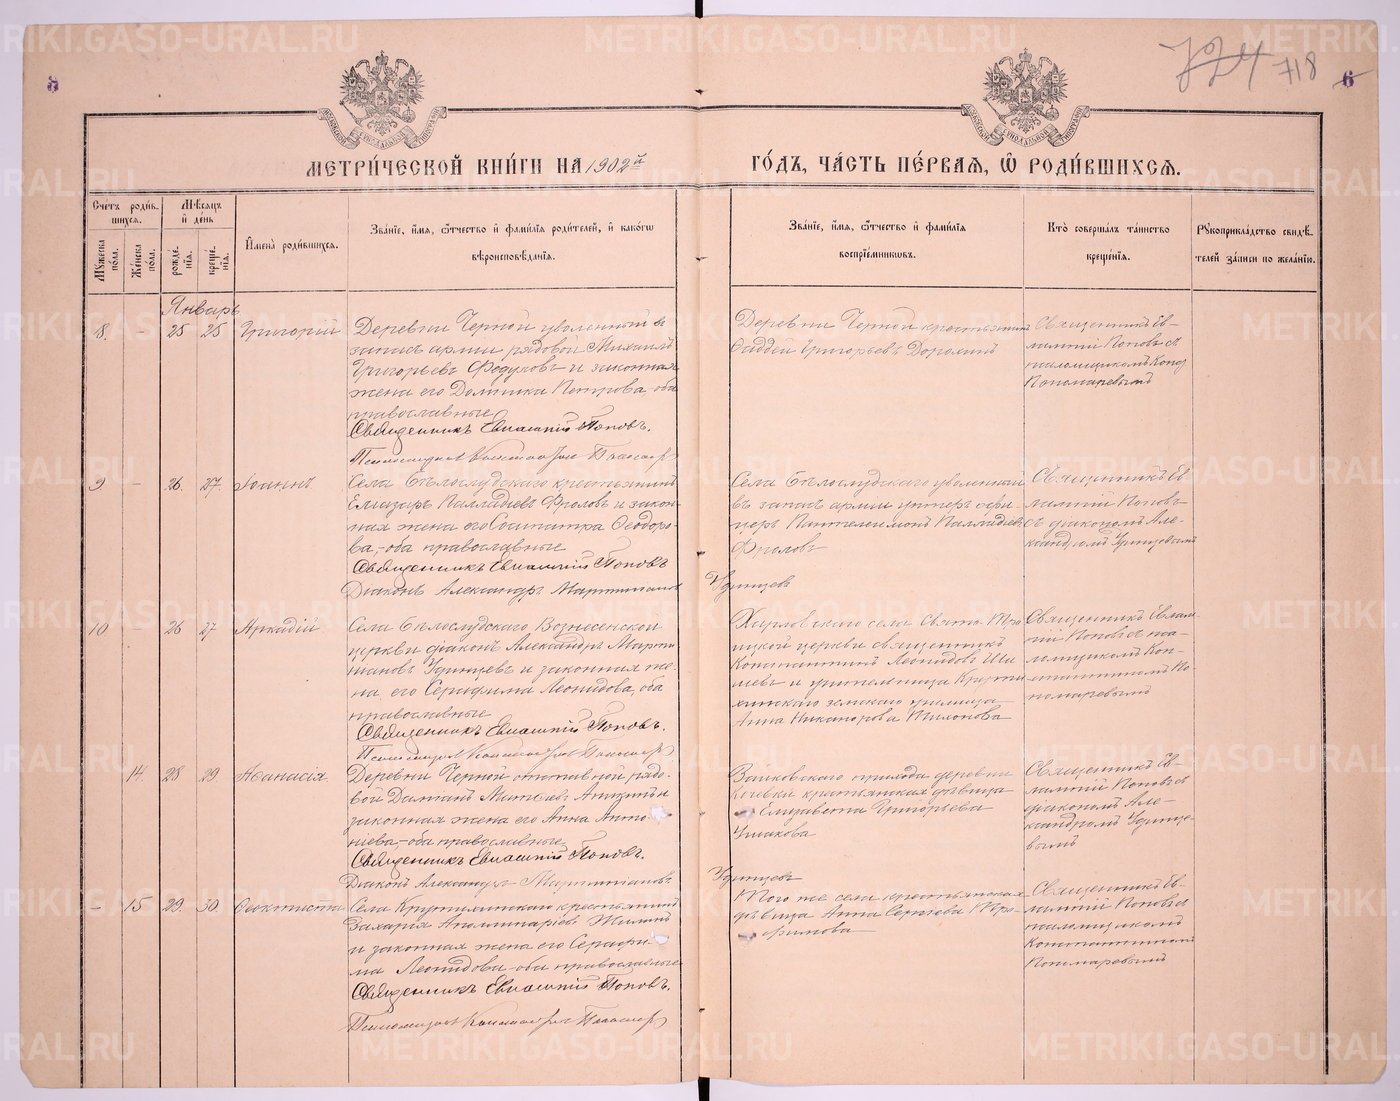 724 718
8
6
МЕТРИ́ЧЕСКОЙ КНИ́ГИ НА 1902й
ГО́ДЪ, ЧА́СТЬ ПЕ́РВАЯ, Ѡ РОДИ́ВШИХСЯ.
Сче́тъ роди́в-
шихся.
Мѣсяцъ
и де́нь
Му́жеска по́ла.
Же́нска по́ла.
рожде́-
нїя.
креще́-
нїя.
Имена̀ роди́вшихся.
Зва́нїе, и́мя, о́тчество и фами́лїя роди́телей, и како́гѡ
вѣроисповѣ́данїя.
Зва́нїе, и́мя, о́тчество и фами́лїя
воспрїе́мниковъ.
Кто̀ соверша́лъ та́инство
креще́нїя.
Рукоприкла́дство свидѣ́-
телей за́писи по жела́нїю.
Январь
8. - 25 25 Григорій
Деревни Черной уволенный в
запасъ армии рядовой Михаилъ
Григорьевъ Федуловъ и законная
жена его Домника Петрова, оба
православные
Священникъ Евлампій Поповъ.
Деревни Черной крестьянинъ
Фаддей Григорьевъ
Священникъ Ев-
лампій Поповъ съ
псаломщикомъ Конст
Пономаревымъ
9 - 26. 27. Іоаннъ
Села Бѣлослудскаго крестьянинъ
Елиазаръ Палладіевъ Фроловъ и закон-
ная жена его Сосипатра Ѳеодоро-
ва, оба православные
Священникъ Евлампій Поповъ
Діаконъ Александръ Мартиніановъ
Удинцевъ
Села Бѣлослудскаго уволенный
въ запасъ армии унтеръ офи-
церъ Пантелеимонъ Палладіевъ
Фроловъ
Священникъ Ев
лампій Поповъ
съ діакономъ Але-
ксандромъ Удинцевымъ
10 - 26 27 Аркадій
Села Бѣлослудскаго Вознесенской
церкви діаконъ Александръ Марти
ніановъ Удинцевъ и законная же-
на его Серафима Леонидова, оба
православные
Священникъ Евлампій Поповъ.
Харловскаго села Свято Тро
ицкой церкви священникъ
Константинъ Леонидовъ
и учительница Крути
хинскаго земскаго училища
Анна Никанорова
Священникъ Евлам
пій Поповъ съ пса-
ломщикомъ Кон-
стантиномъ По
номаревымъ
14. 28 29. Аѳанасія
Деревни Черной отставной рядо-
вой Даміанъ
законная жена его Анна Анто
ніева, оба православные
Священникъ Евлампій Поповъ.
Діаконъ Александръ Мартиніановъ
Удинцевъ
Зайковскаго прихода деревни
крестьянская дѣвица
Елизавета Григорьева
Ушакова
Священникъ Ев-
лампій Поповъ съ
діакономъ Але-
ксандромъ Удинце-
вымъ
- 15 29. 30. Ѳеоктиста
Села Крутихинскаго крестьянинъ
Захарія Аполлинаріевъ
и законная жена его Серафи-
ма Леонидова оба православные
Священникъ Евлампій Поповъ.
Того же села крестьянская
дѣвица Анна Сергѣева Тро-
фимова
Священникъ Ев-
лампій Поповъ съ
псаломщикомъ
Константиномъ
Пономаревымъ
METRIKI.GASO-URAL.RU